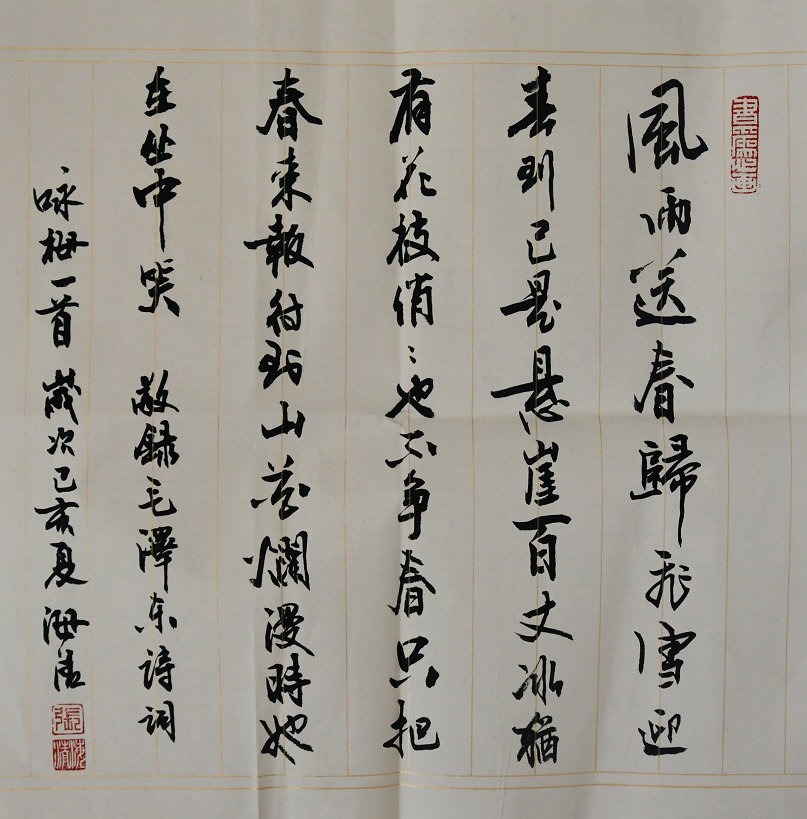 風雨送春歸飛雪迎
春到已是懸崖百丈冰猶
有花枝俏〻也不争春只把
春来報待到山花爛漫時她
在丛中笑 敬録毛澤东詩詞
咏梅一首 歲次己亥夏 海清
張
海清